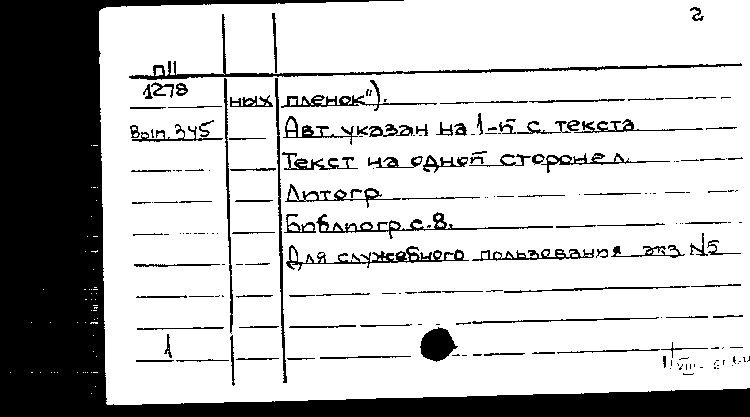 2
П11
1278
ных пленок").
Вып. 345
Авт. указан на 1-й с. текста
Текст на одной стороне л.
Литогр.
Библиогр. с. 8.
Для служебного пользования экз №5
1